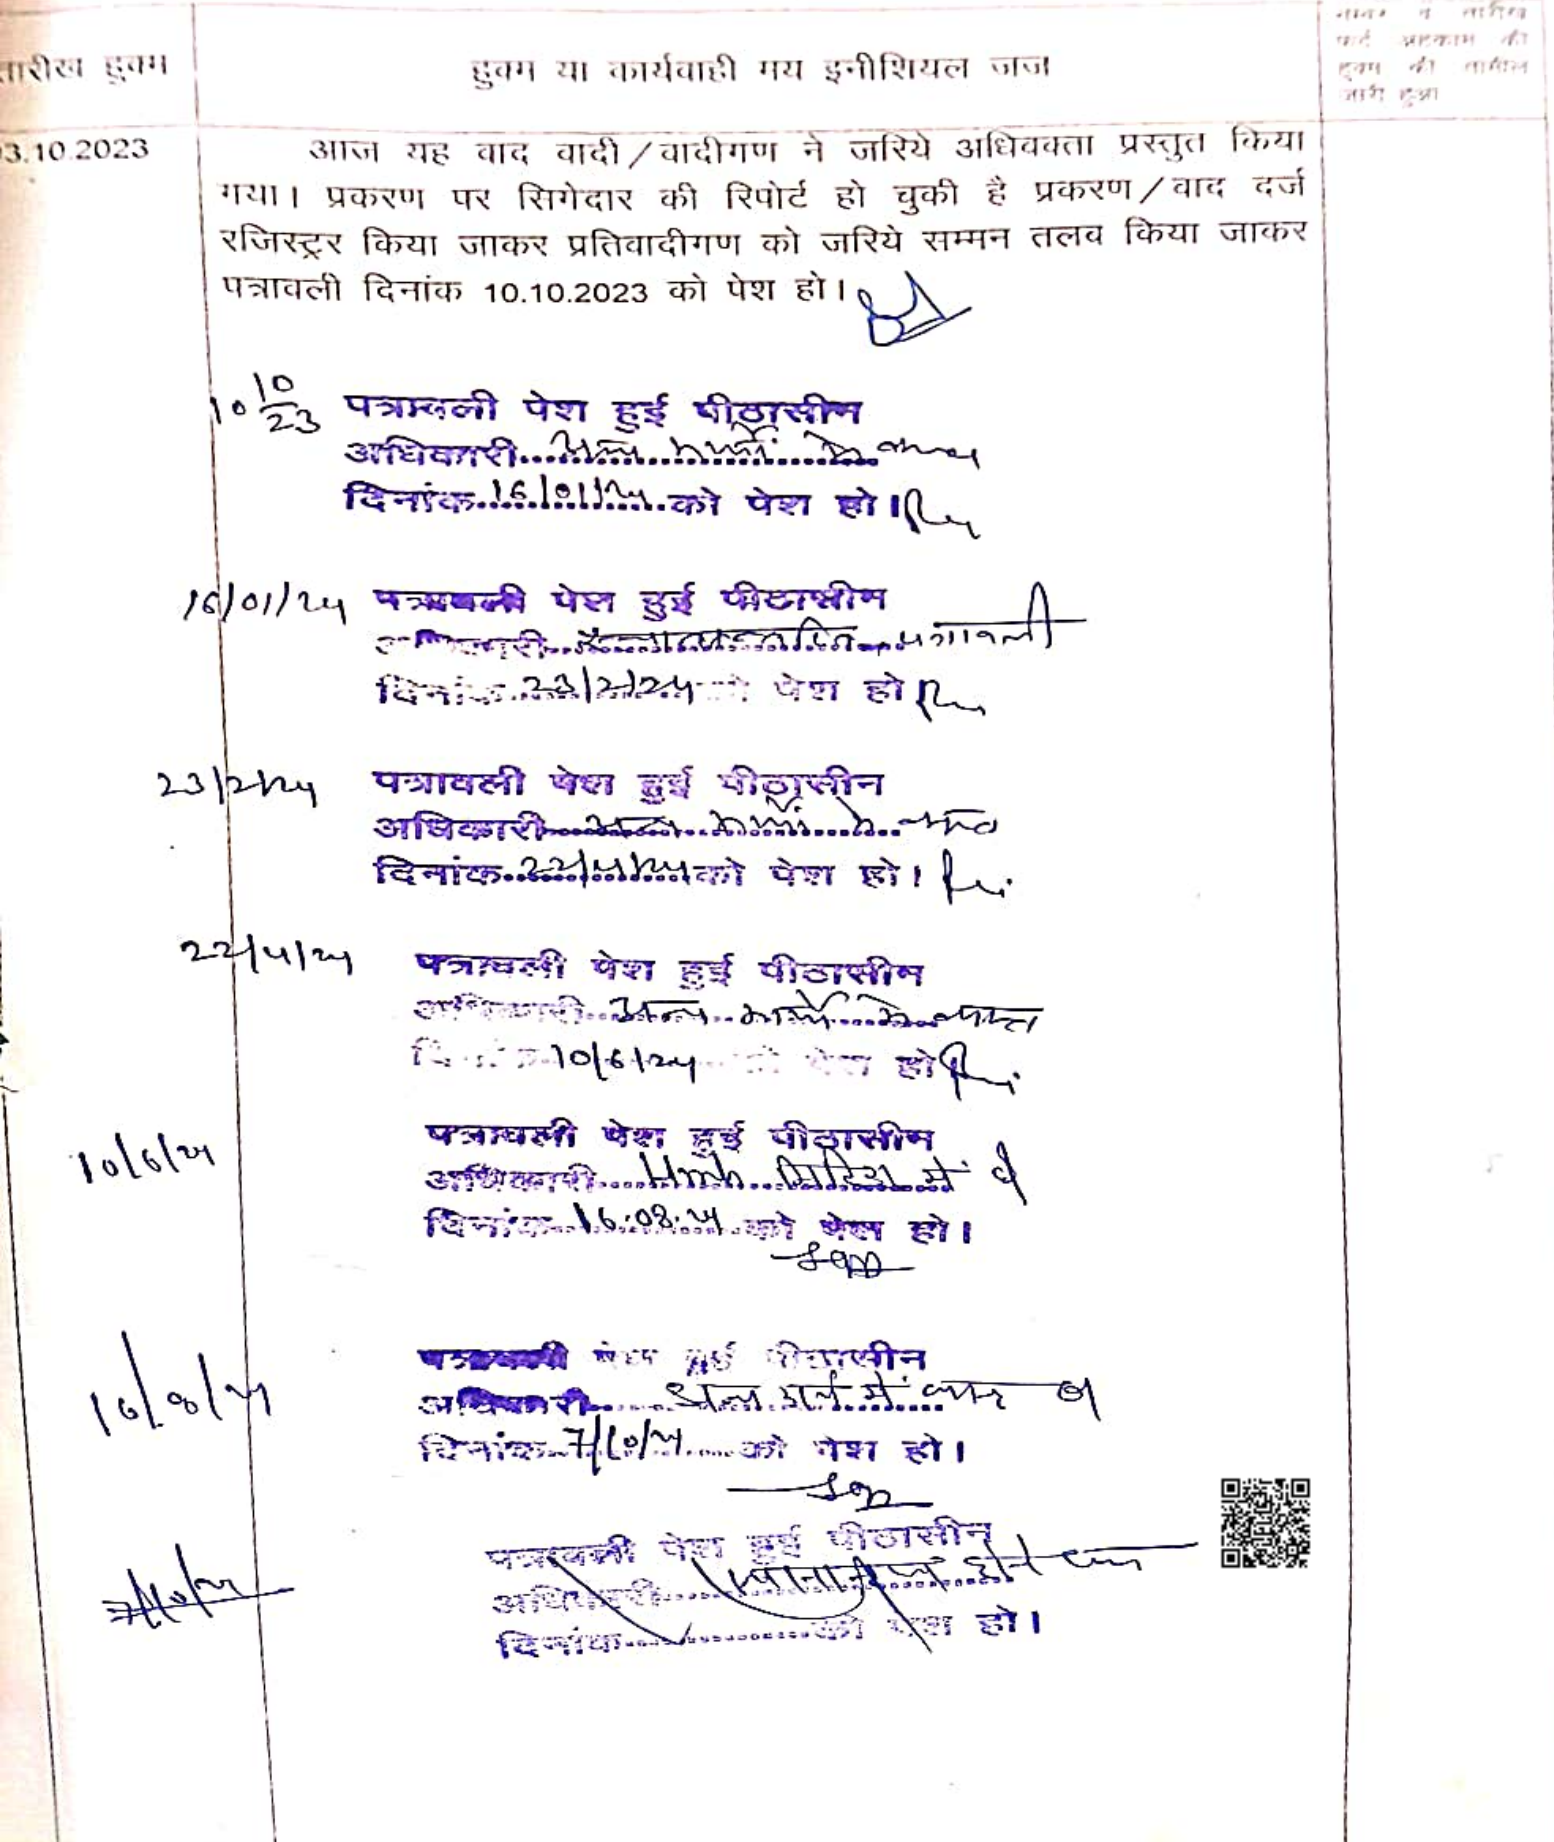 तारीख हुक्म
हुक्म या कार्यवाही मय इनीशियल जज
नम्बर व तारीख
अहकाम की
हुक्म की तामील
जारी हुआ
03.10.2023
आज यह वाद वादी/वादीगण ने जरिये अधिवक्ता प्रस्तुत किया
गया। प्रकरण पर सिगेदार की रिपोर्ट हो चुकी है प्रकरण/वाद दर्ज
रजिस्ट्रर किया जाकर प्रतिवादीगण को जरिये सम्मन तलब किया जाकर
पत्रावली दिनांक 10.10.2023 को पेश हो।
10 10/23
पत्रावली पेश हुई पीठासीन
अधिकारी अन्य कार्यों में व्यस्त
दिनांक 16/01/24 को पेश हो।
16/01/24
पत्रावली पेश हुई पीठासीन
अधिकारी पत्रावली
दिनांक 23/2/24 को पेश हो
23/2/24
पत्रावली पेश हुई पीठासीन
अधिकारी अन्य कार्यों में व्यस्त
दिनांक 22/4/24 को पेश हो।
22/4/24
पत्रावली पेश हुई पीठासीन
अधिकारी अन्य कार्यों में व्यस्त
दिनांक 10/6/24 को पेश हो
10/6/24
पत्रावली पेश हुई पीठासीन
अधिकारी में
दिनांक 16.08.24 को पेश हो।
16/8/24
पत्रावली पेश हुई पीठासीन
अधिकारी अन्य कार्य में
दिनांक 7/10/24 को पेश हो।
7/10/24
पत्रावली पेश हुई पीठासीन
अधिकारी
दिनांक को पेश हो।